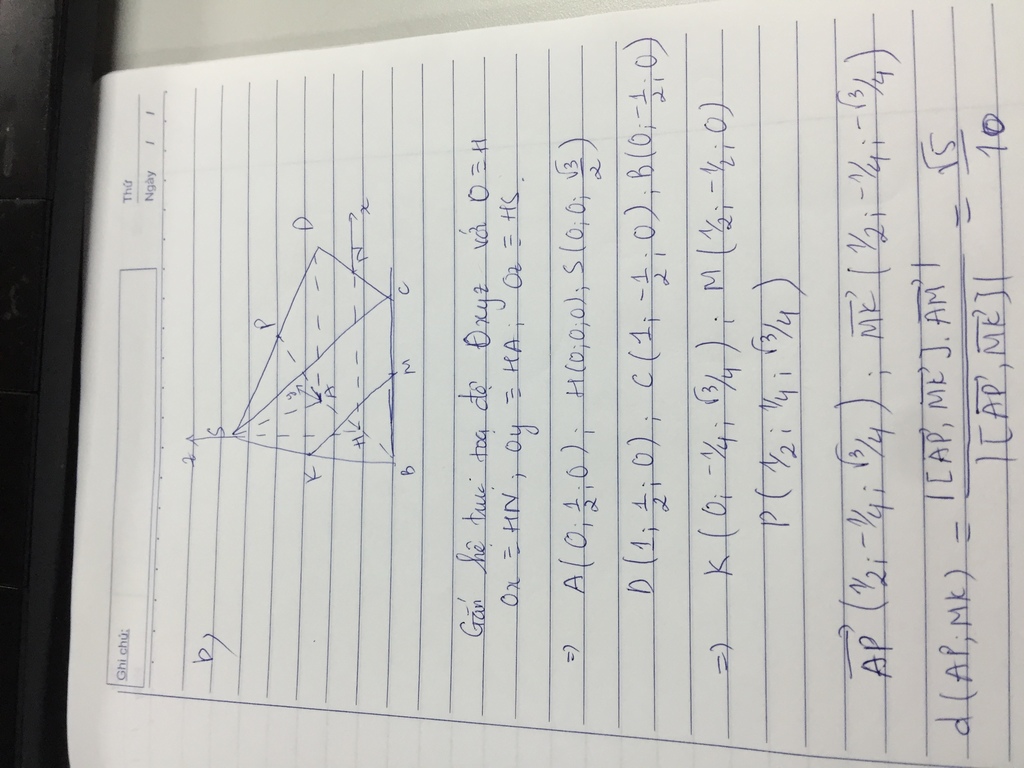 Ghi chú:
Thứ
Ngày / /
b)
z
S
P
K
y
A
D
H
N
x
B
M
C
Gắn hệ trục toạ độ Oxyz với O ≡ H
Ox ≡ HN ; Oy ≡ HA ; Oz ≡ HS.
=> A(0; 1/2; 0) ; H(0;0;0) ; S(0; 0; √3/2)
D(1; 1/2; 0) ; C(1; -1/2; 0) ; B(0; -1/2; 0)
=> K(0; -1/4; √3/4) ; M(1/2; -1/2; 0)
P(1/2; 1/4; √3/4)
$\overrightarrow{AP}$ (1/2; -1/4; √3/4) ; $\overrightarrow{MK}$ (1/2; -1/4; -√3/4)
d(AP; MK) = $\frac{|[\overrightarrow{AP}, \overrightarrow{MK}].\overrightarrow{AM}|}{|[\overrightarrow{AP}, \overrightarrow{MK}]|}$ = $\frac{\sqrt{5}}{10}$